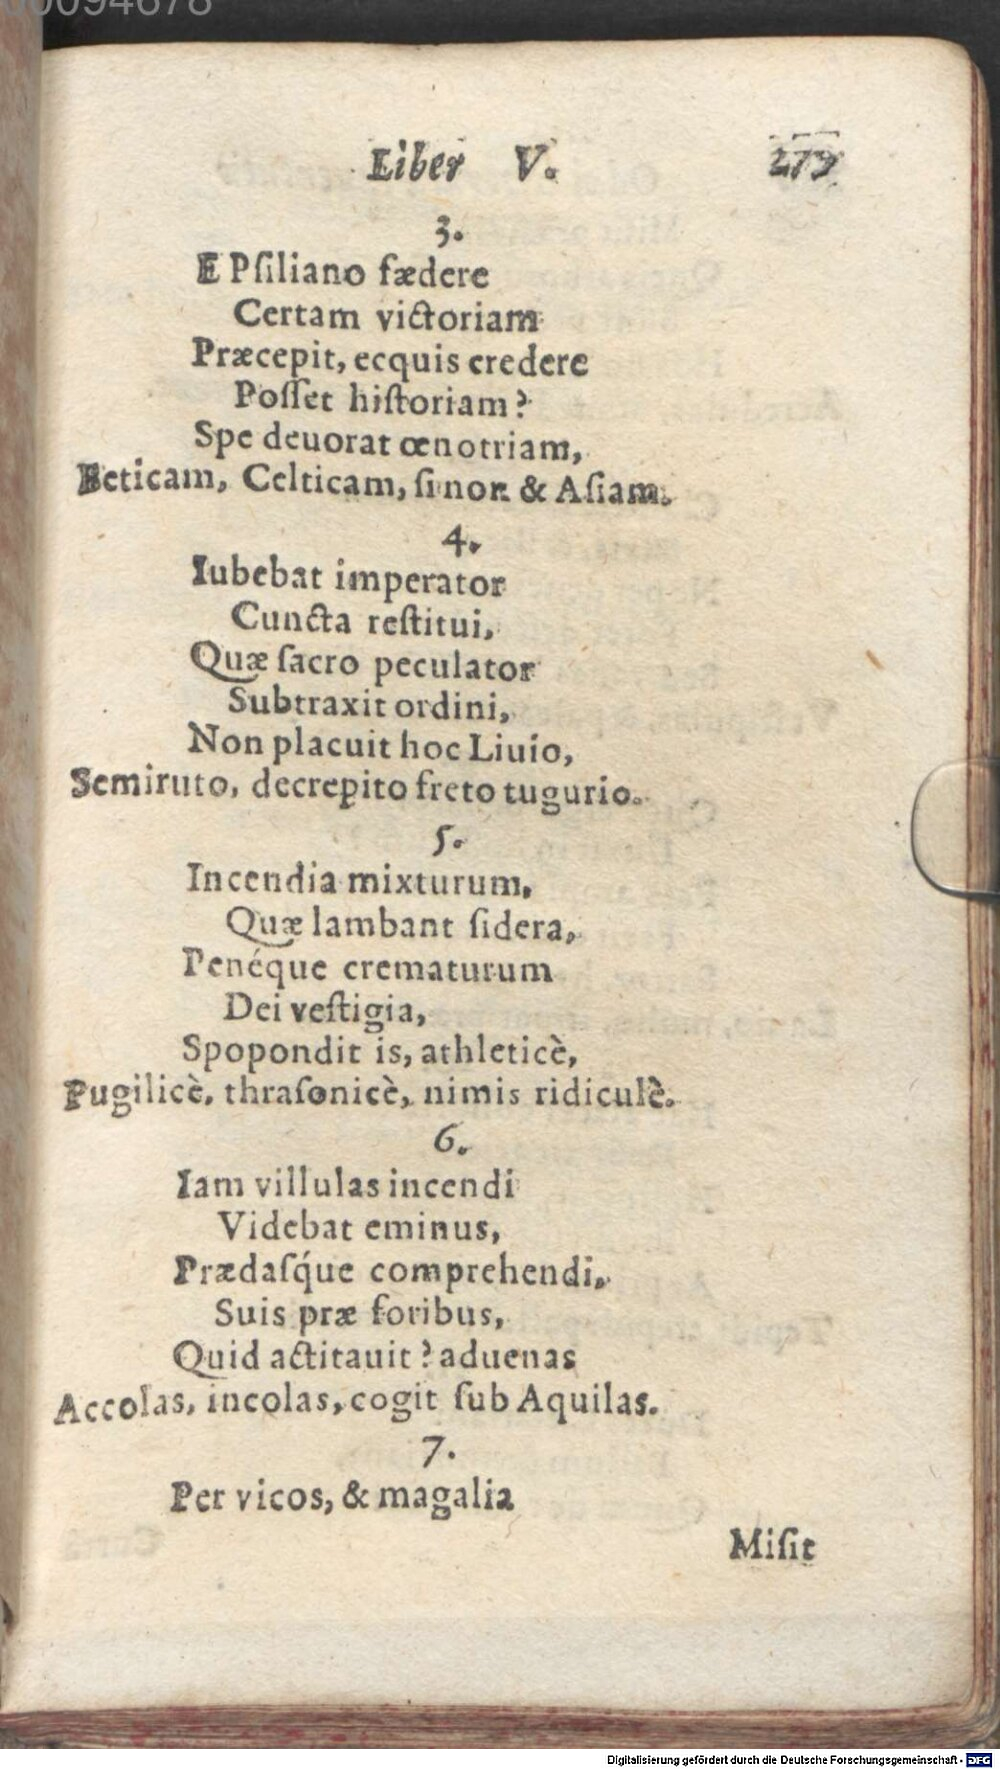 00094678
Liber V. 279
3.
E Pſiliano fædere
Certam victoriam
Præcepit, ecquis credere
Poſſet hiſtoriam?
Spe deuorat œnotriam,
Beticam, Celticam, ſi non & Aſiam.
4.
Iubebat imperator
Cuncta reſtitui,
Quæ ſacro peculator
Subtraxit ordini,
Non placuit hoc Liuio,
Semiruto, decrepito freto tugurio.
5.
Incendia mixturum,
Quæ lambant ſidera,
Penéque crematurum
Dei veſtigia,
Spopondit is, athleticè,
Pugilicè, thraſonicè, nimis ridiculè.
6.
Iam villulas incendi
Videbat eminus,
Prædaſq́ue comprehendi,
Suis præ foribus,
Quid actitauit? aduenas
Accolas, incolas, cogit ſub Aquilas.
7.
Per vicos, & magalia
Miſit
Digitalisierung gefördert durch die Deutsche Forschungsgemeinschaft - DFG